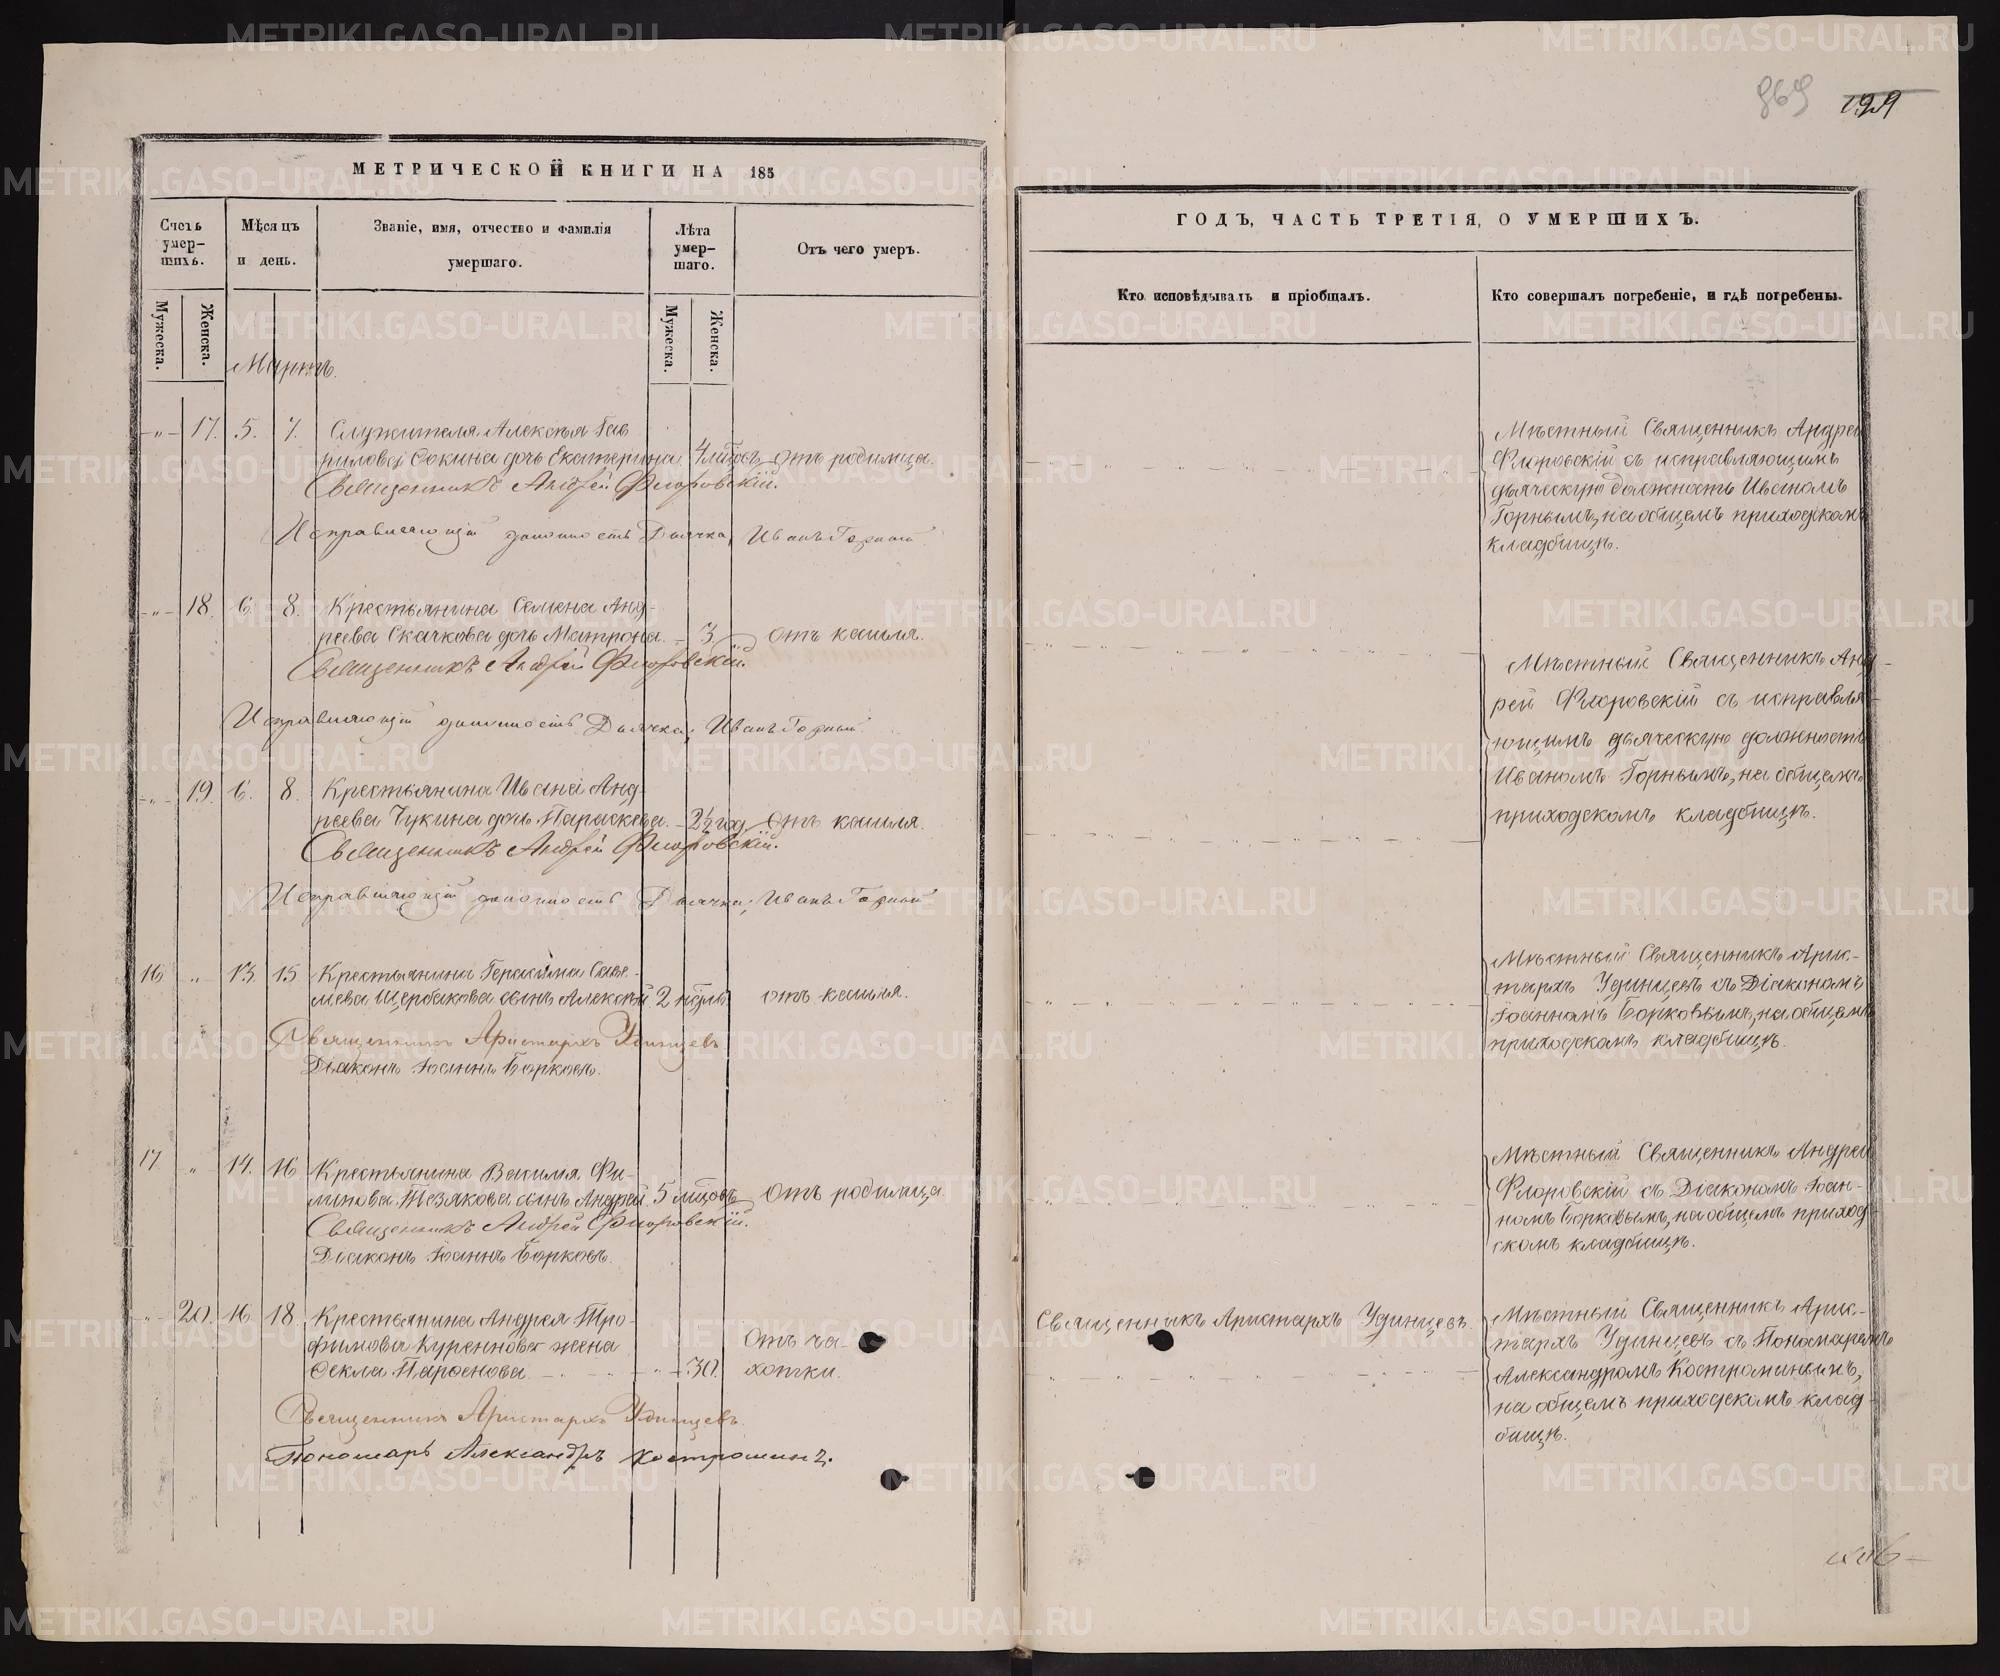 МЕТРИЧЕСКОЙ КНИГИ НА 185
Счетъ умер-шихъ.
Мѣсяцъ и день.
Званіе, имя, отчество и фамилія умершаго.
Лѣта умер-шаго.
Отъ чего умеръ.
Мужеска. Женска.
Мужеска. Женска.
Мартъ.
17. 5. 7. Служителя Алексѣя Гав
рилова Сокина дочь Екатерина 4 мѣсяц. отъ родимца.
Священникъ Андрей Флоровскій.
Исправляющій должность Дьячка, Иванъ Горный
18. 6. 8. Крестьянина Семена Анд-
реева Скачкова дочь Матрона. 3 отъ кашля.
Священникъ Андрей Флоровскій.
Исправляющій должность Дьячка, Иванъ Горный
19. 6. 8. Крестьянина Ивана Анд-
реева Чукина дочь Параскева. 2½ год отъ кашля.
Священникъ Андрей Флоровскій.
Исправляющій должность Дьячка, Иванъ Горный
16 „ 13. 15 Крестьянина Герасима Саве-
льева Щербакова сынъ Алексѣй 2 нѣдль отъ кашля.
Священникъ Аристархъ Удинцевъ
Діаконъ Іоаннъ Борковъ.
17 „ 14. 16 Крестьянина Василія Фи-
липова Тезякова сынъ Андрей 5 мѣсяц. отъ родимца.
Священникъ Андрей Флоровскій.
Діаконъ Іоаннъ Борковъ.
20. 16. 18. Крестьянина Андрея Тро-
фимова Куреннова жена отъ ча-
Ѳекла Парѳенова. 30. хотки.
Священникъ Аристархъ Удинцевъ.
Пономарь Александръ Костроминъ.
869 129
ГОДЪ, ЧАСТЬ ТРЕТІЯ, О УМЕРШИХЪ.
Кто исповѣдывалъ и пріобщалъ.
Кто совершалъ погребеніе, и гдѣ погребены.
Мѣстный Священникъ Андрей
Флоровскій съ исправляющимъ
дьяческую должность Иваномъ
Горнымъ, на общемъ приходскомъ
кладбищѣ.
Мѣстный Священникъ Анд-
рей Флоровскій съ исправля-
ющимъ дьяческую должность
Иваномъ Горнымъ, на общемъ
приходскомъ кладбищѣ.
Мѣстный Священникъ Арис-
тархъ Удинцевъ съ Діакономъ
Іоанномъ Борковымъ, на общемъ
приходскомъ кладбищѣ.
Мѣстный Священникъ Андрей
Флоровскій съ Діакономъ Іоан-
номъ Борковымъ, на общемъ приход-
скомъ кладбищѣ.
Священникъ Аристархъ Удинцевъ.
Мѣстный Священникъ Арис-
тархъ Удинцевъ съ Пономаремъ
Александромъ Костроминымъ,
на общемъ приходскомъ клад-
бищѣ.
METRIKI.GASO-URAL.RU